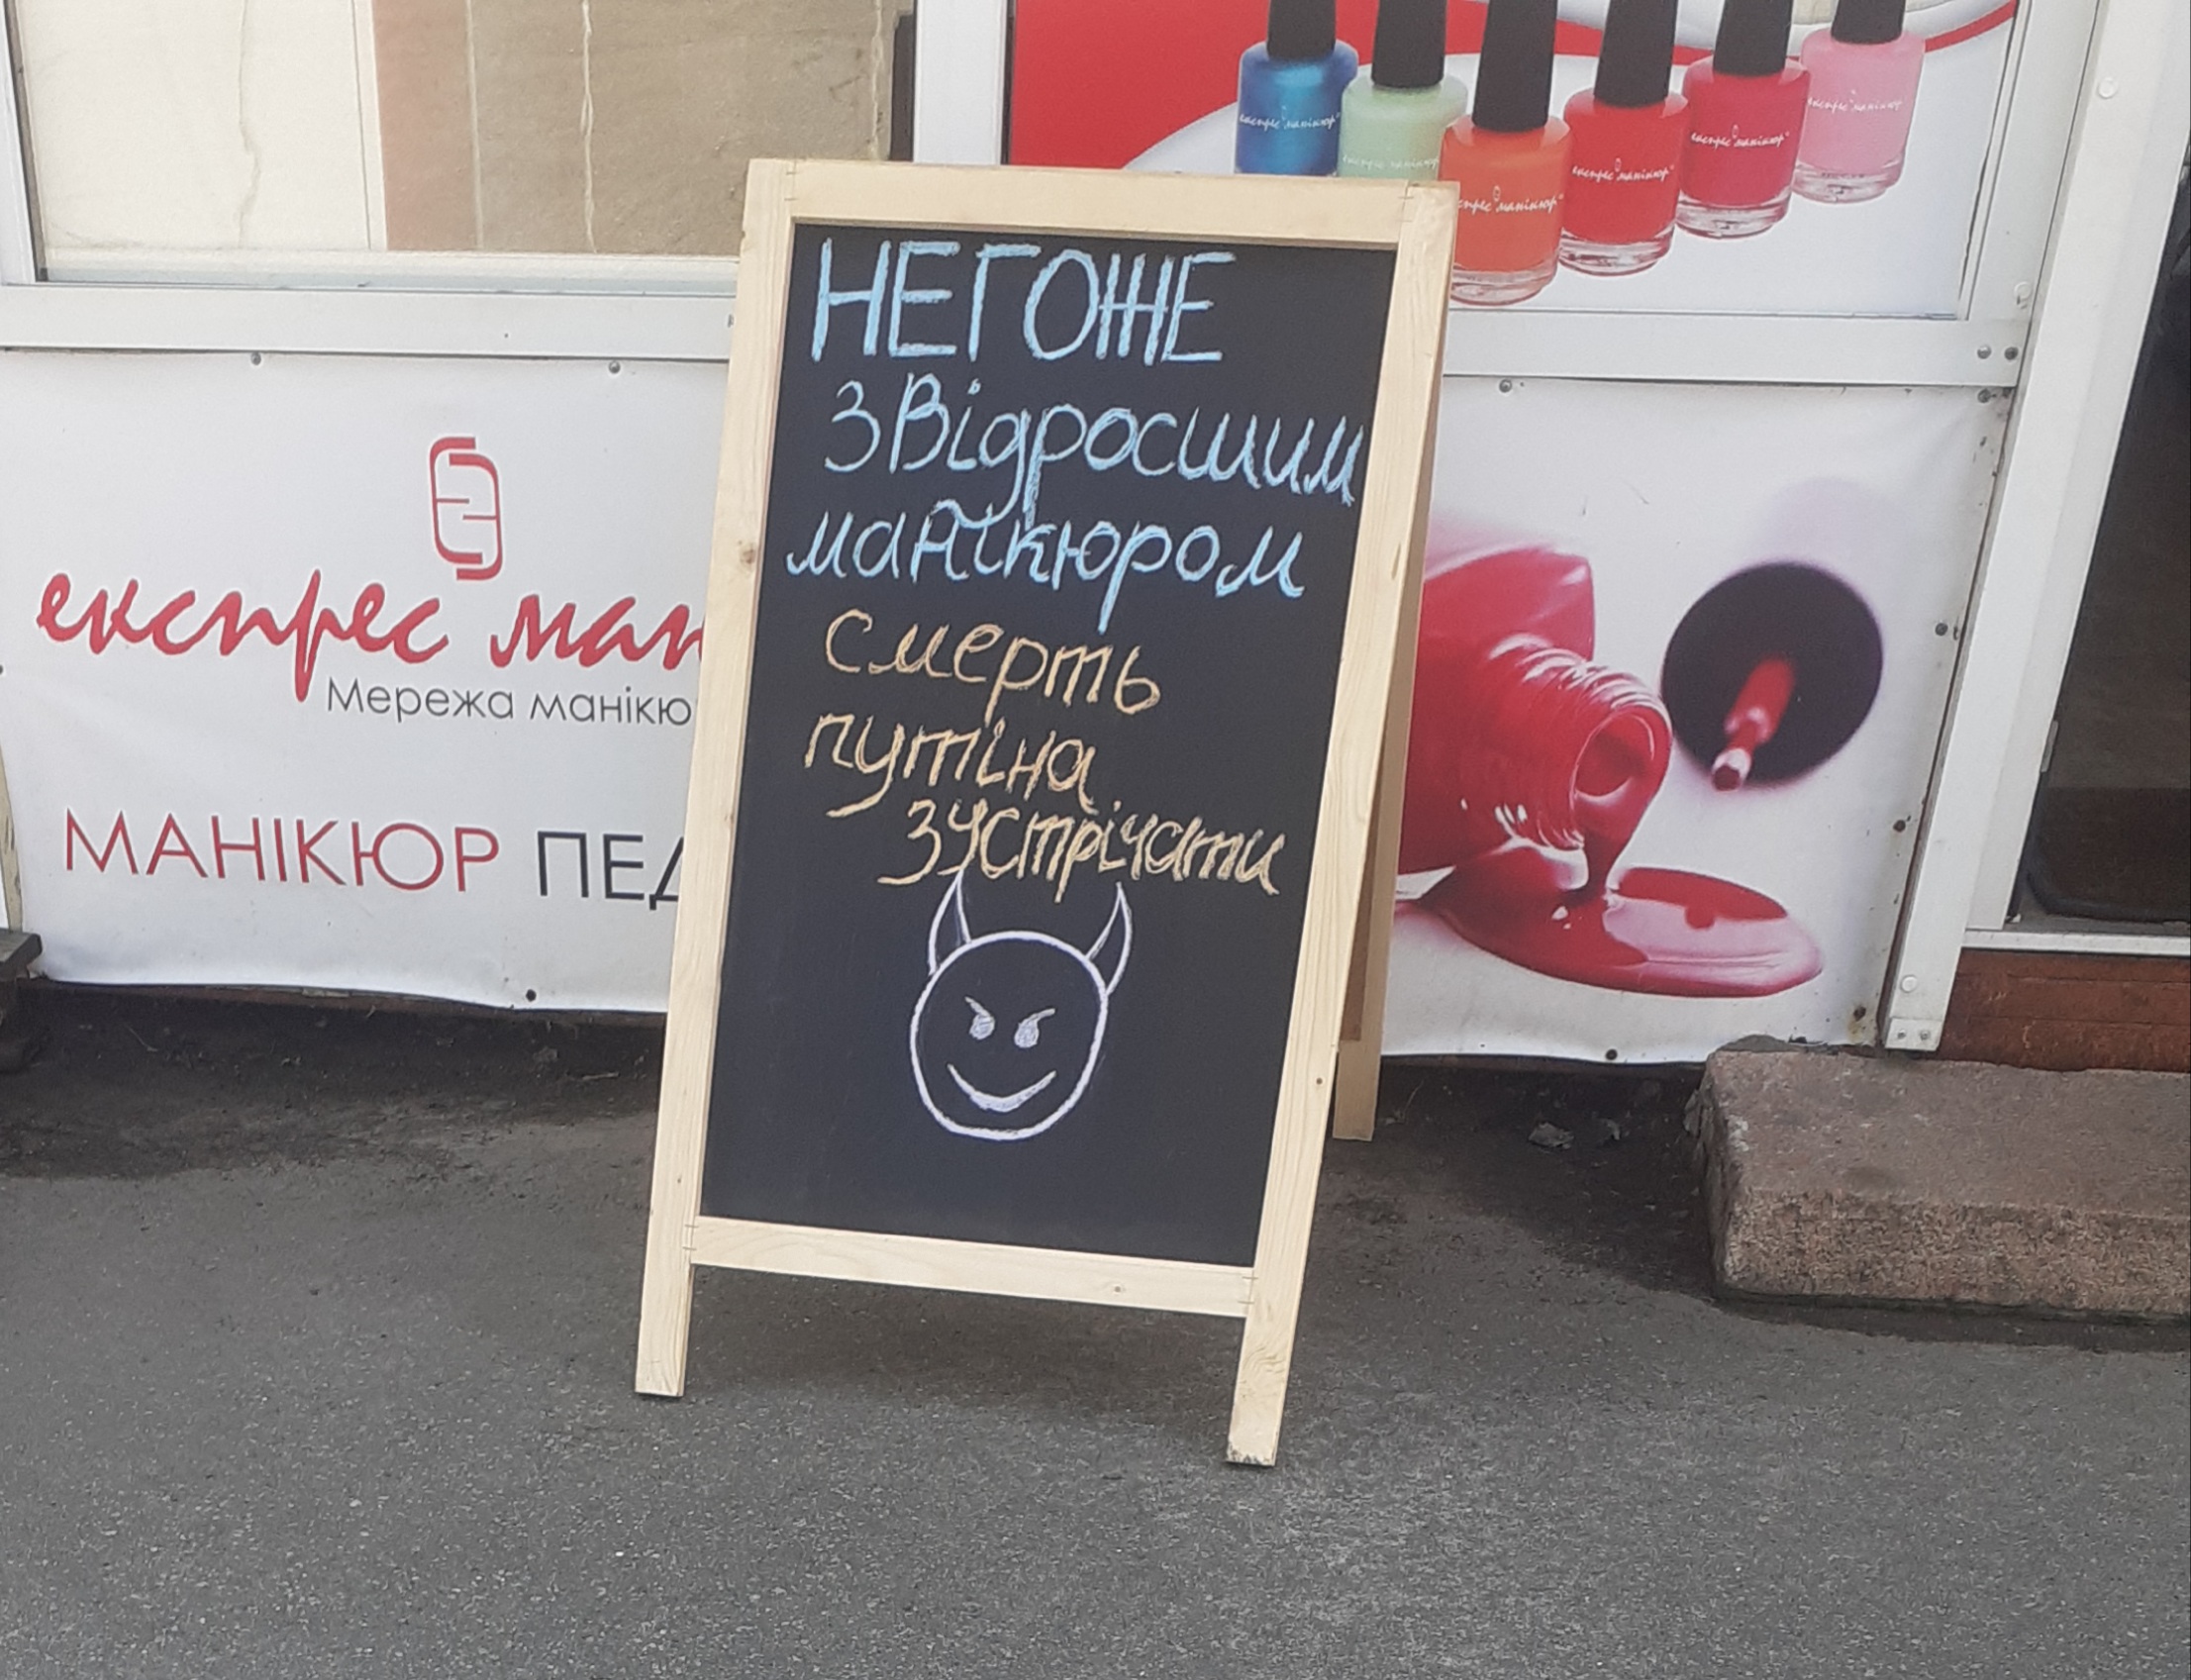 НЕГОЖЕ
з Відросшим
манікюром
смерть
путіна
зустрічати
експрес ман
Мережа манікю
МАНІКЮР ПЕД
експрес манікюр
експрес манікюр
експрес манікюр
експрес манікюр
експрес манікюр
експрес манікюр